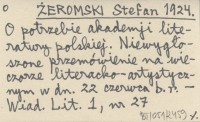 ŻEROMSKI Stefan 1924.
O potrzebie akademji lite-
ratury polskiej. Niewygło-
szone przemówienie na wie-
czorze literacko-artystycz-
nym w dn. 22 czerwca b.r. -
Wiad. Lit. 1, nr 27